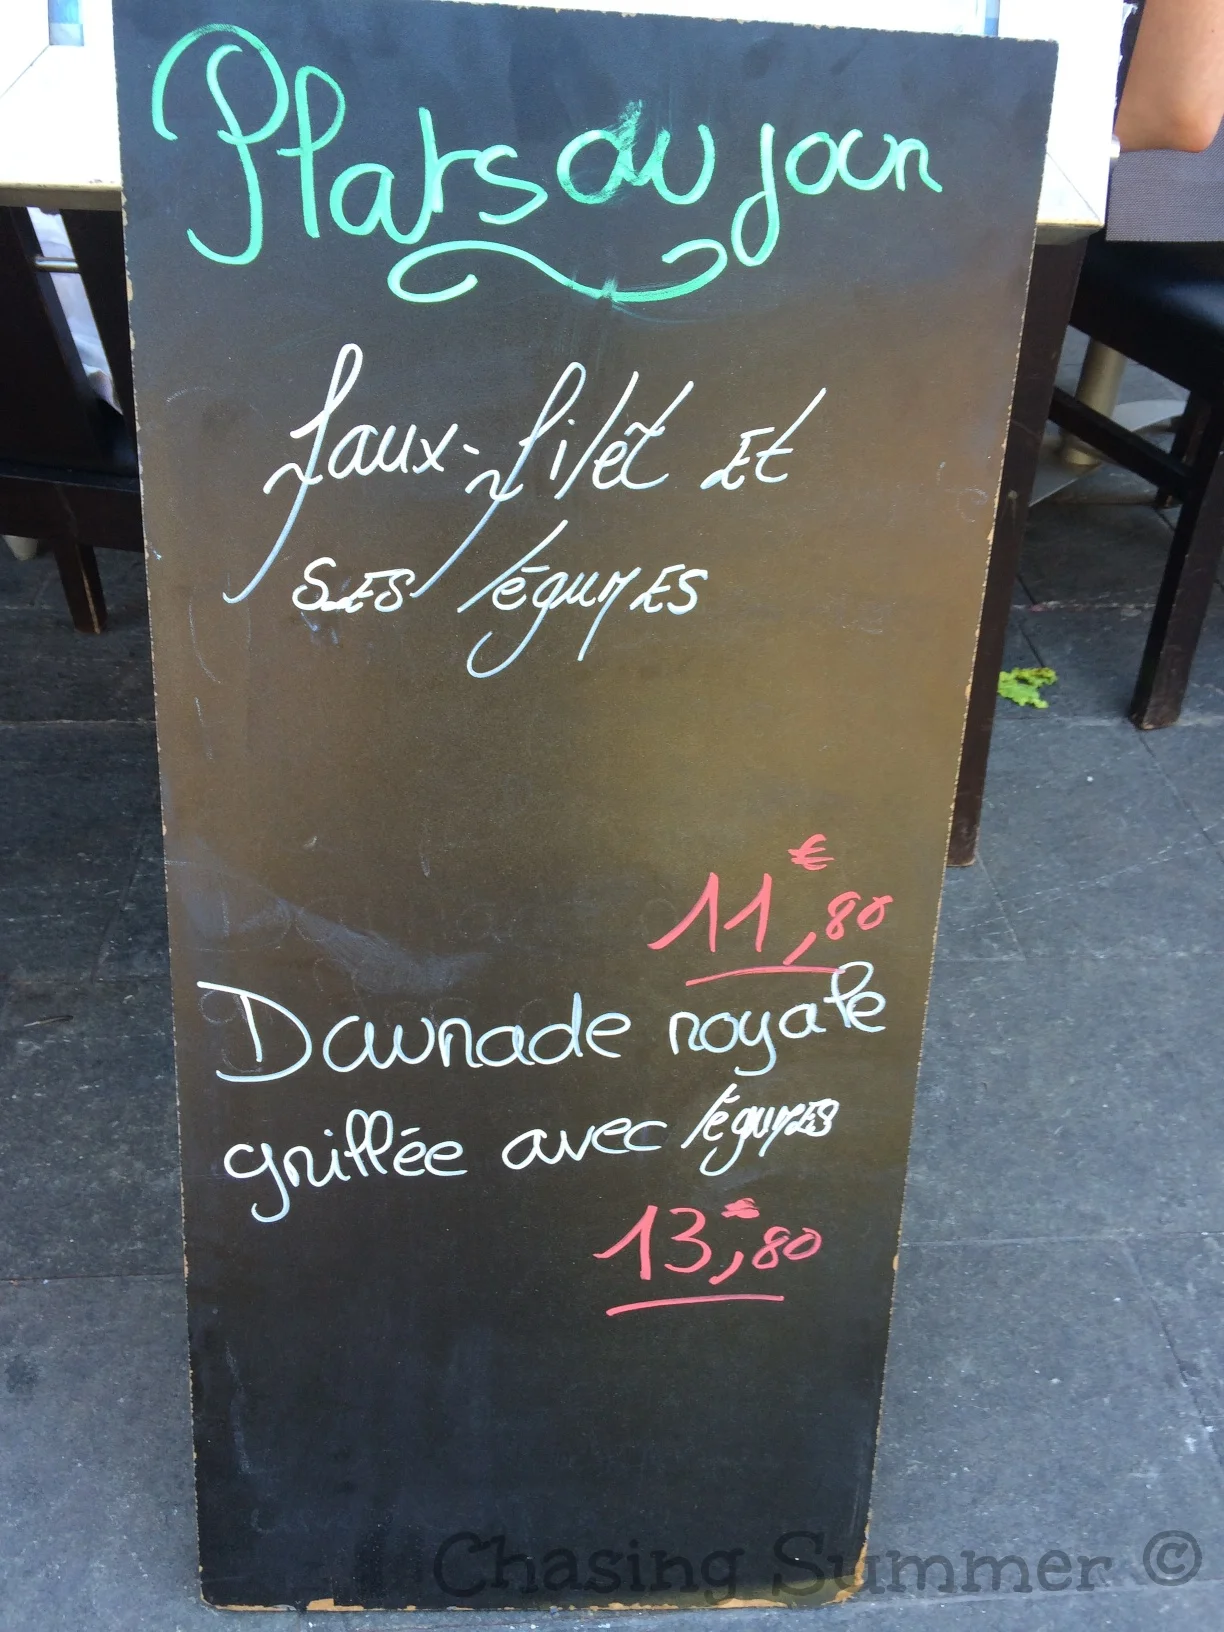 Plats du jour
faux-filet et
ses légumes
11,80
€
Daurade royale
grillée avec légumes
13,80
€
Chasing Summer ©